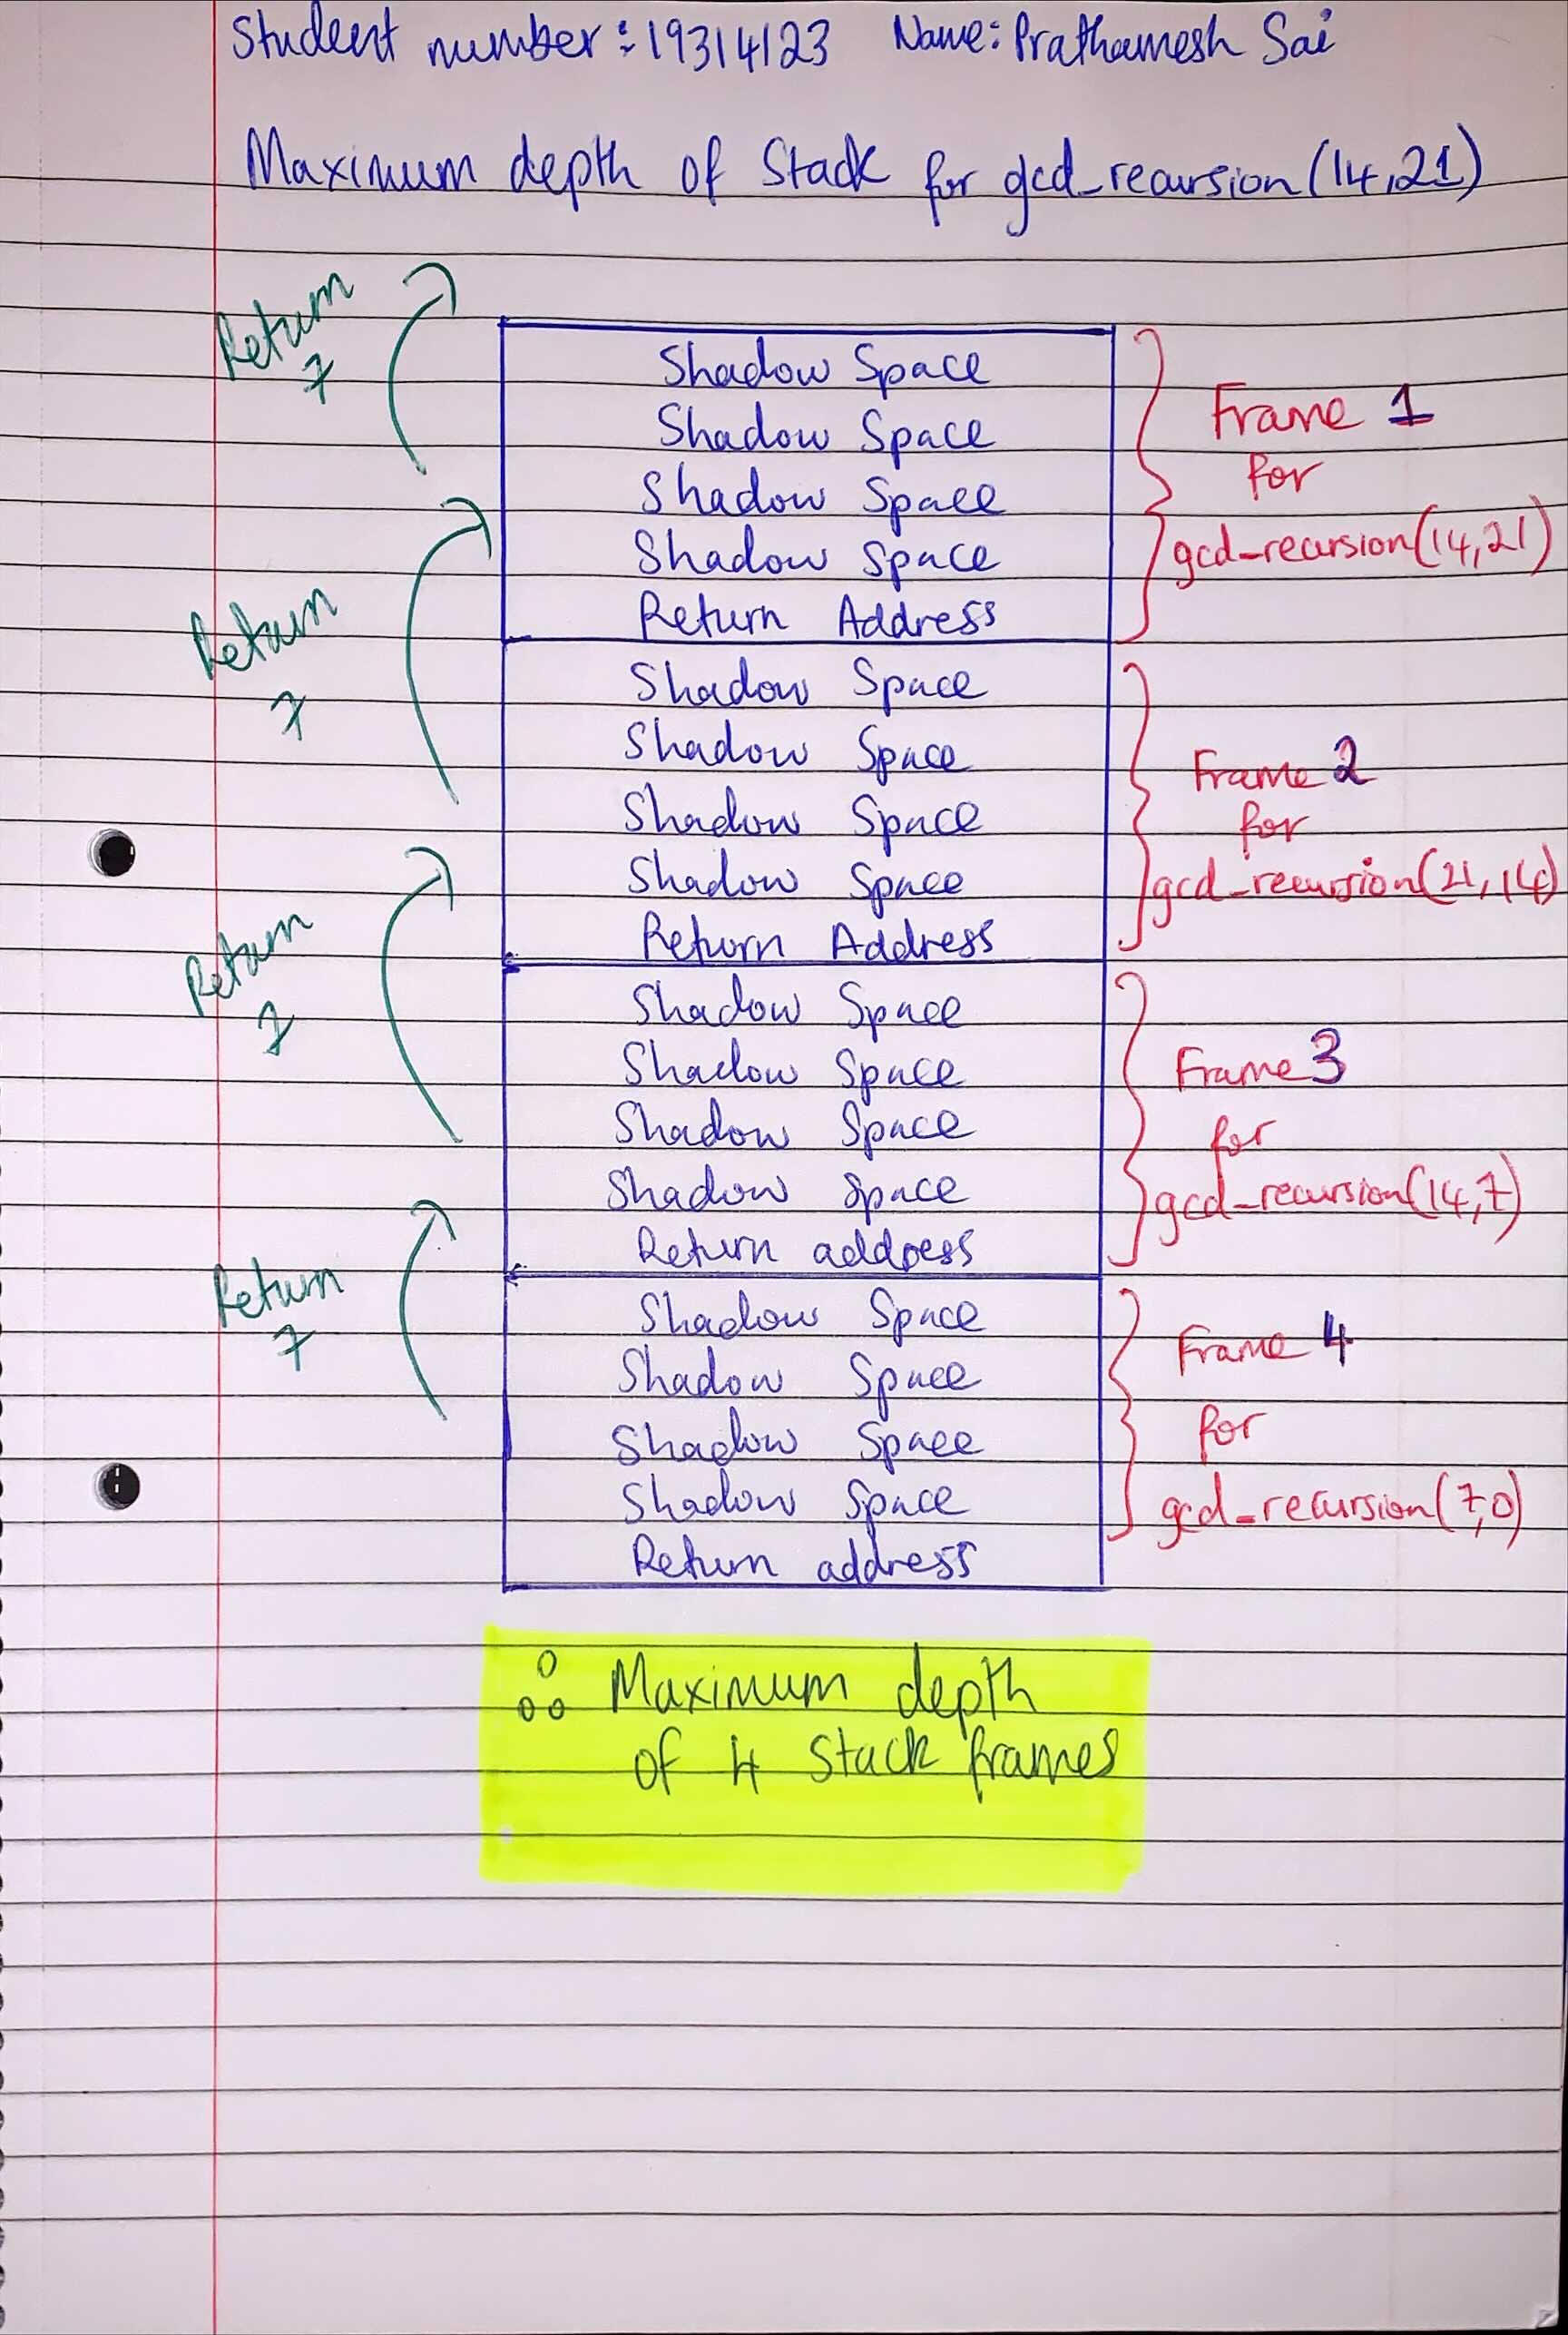 Student number: 19314123 Name: Prathamesh Sai
Maximum depth of Stack for gcd_recursion(14,21)
Return
7
Shadow Space
Shadow Space
Shadow Space
Shadow Space
Return Address
Frame 1
for
gcd_recursion(14,21)
Return
7
Shadow Space
Shadow Space
Shadow Space
Shadow Space
Return Address
Frame 2
for
gcd_recursion(21,14)
Return
7
Shadow Space
Shadow Space
Shadow Space
Shadow Space
Return address
Frame 3
for
gcd_recursion(14,7)
Return
7
Shadow Space
Shadow Space
Shadow Space
Shadow Space
Return address
Frame 4
for
gcd_recursion(7,0)
∴ Maximum depth
of 4 Stack frames